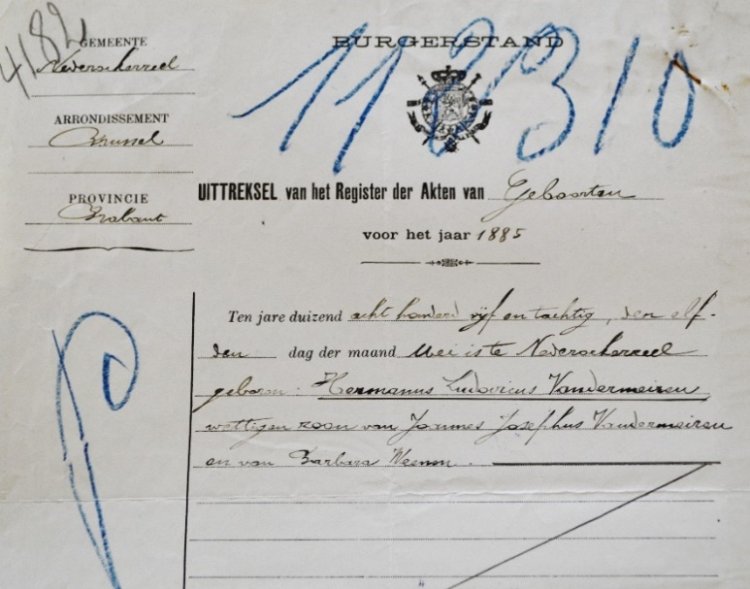 4182
GEMEENTE
Nederockerzeel
ARRONDISSEMENT
Brussel
PROVINCIE
Brabant
BURGERSTAND
112310
UITTREKSEL van het Register der Akten van Geboorten
voor het jaar 1885
Ten jare duizend acht honderd vijf en tachtig, den elf-
den dag der maand Mei is te Nederockerzeel
geboren: Hermanus Ludovicus Vandermeiren
wettigen zoon van Joannes Josephus Vandermeiren
en van Barbara